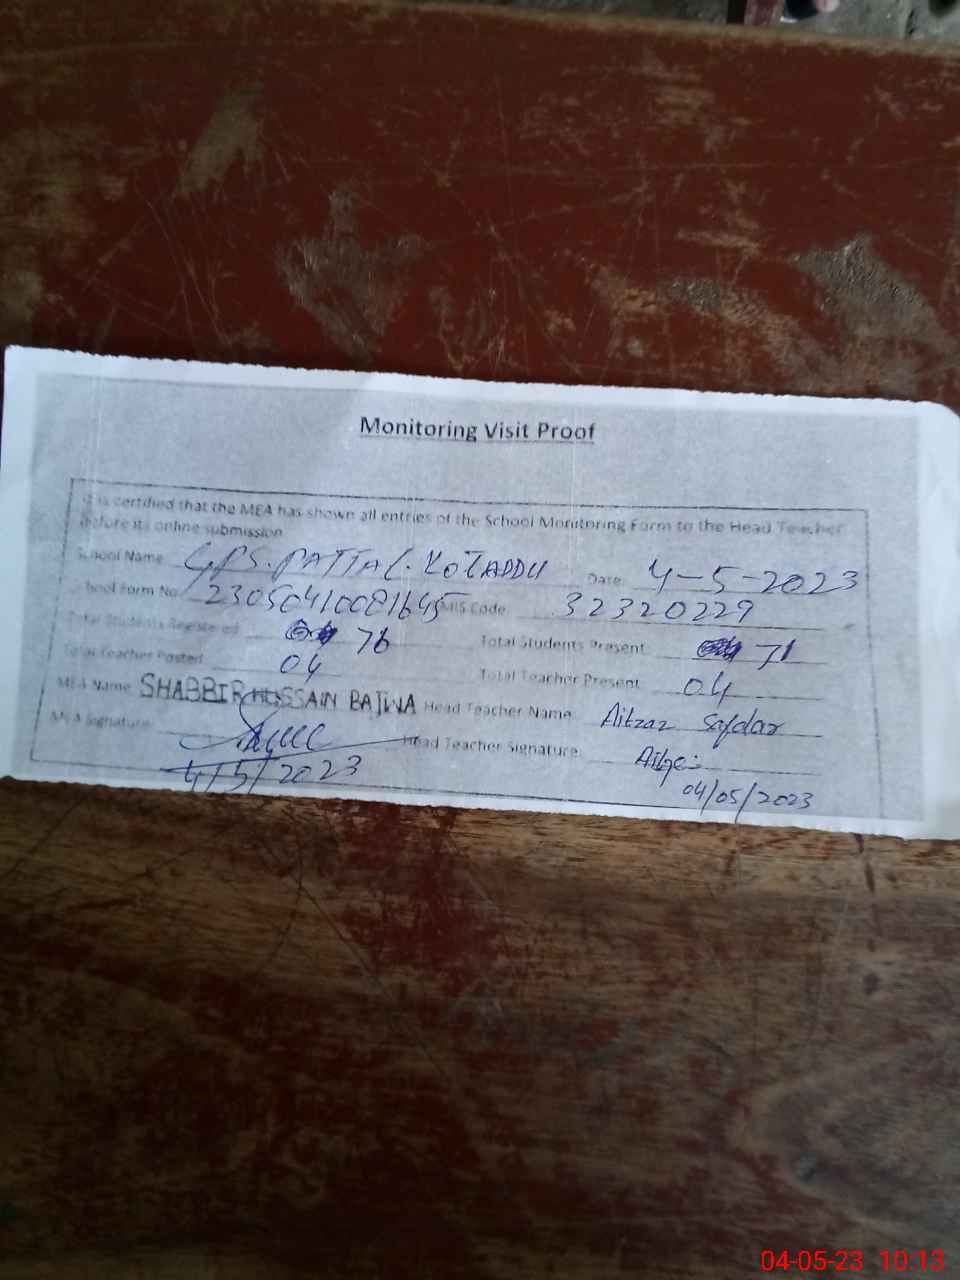 Monitoring Visit Proof
It is certified that the MEA has shown all entries of the School Monitoring Form to the Head Teacher
before its online submission
School Name GPS. PATTAL. KOTADDU Date 4-5-2023
School Form No 23050410081645 EMIS Code 32320229
Total Students Registered 76 Total Students Present 71
Total Teacher Posted 04 Total Teacher Present 04
MEA Name SHABBIR HUSSAIN BAJWA Head Teacher Name Aitzaz Safdar
MEA Signature Head Teacher Signature
4/5/2023 04/05/2023
04-05-23 10:13